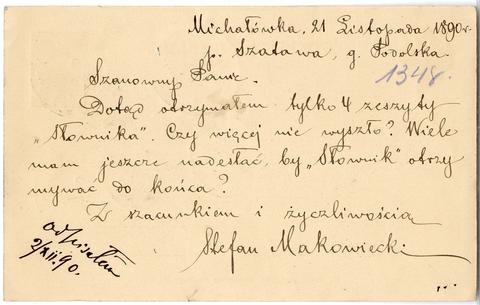 Michałówka, 21 Listopada 1890 r.
p. Szatawa, g. Podolska.
1348.
Szanowny Panie.
Dotąd otrzymałem tylko 4 zeszyty
„Słownika”. Czy więcej nie wyszło? Wiele
mam jeszcze nadesłać, by „Słownik” otrzy
mywać do końca?
Z szacunkiem i życzliwością
Stefan Makowiecki
odpisałem
2/XII. 90.